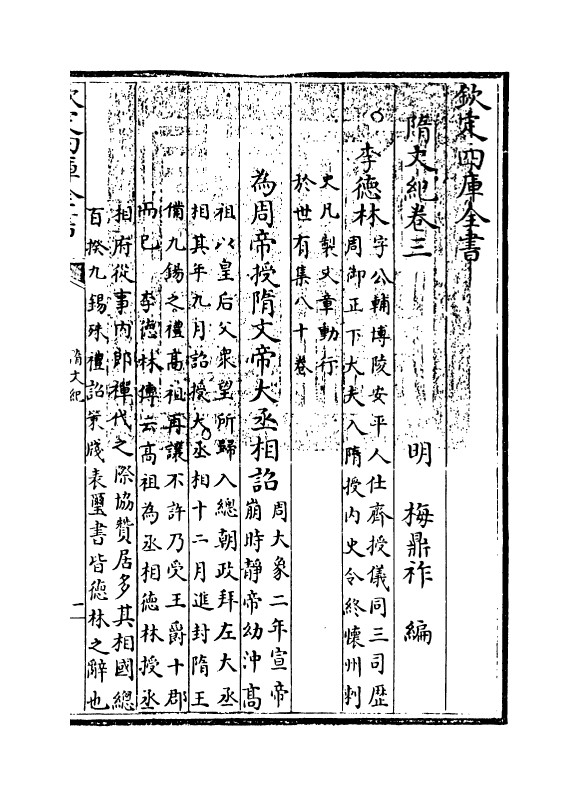 欽定四庫全書
隋文紀卷三
明 梅鼎祚 編
李德林字公輔博陵安平人仕齊授儀同三司歴
周御正下大夫入隋授内史令終懷州刺
史凡製文章動行
於世有集八十卷
為周帝授隋文帝大丞相詔周大象二年宣帝
崩時靜帝幼沖高
祖以皇后父衆望所歸入總朝政拜左大丞
相其年九月詔授大丞相十二月進封隋王
備九錫之禮髙祖再讓不許乃受王爵十郡
而已 李德林傳云髙祖為丞相德林授丞
相府從事内郎禪代之際協贊居多其相國總
百揆九錫殊禮詔策牋表璽書皆德林之辭也
欽定四庫全書
隋文紀
二